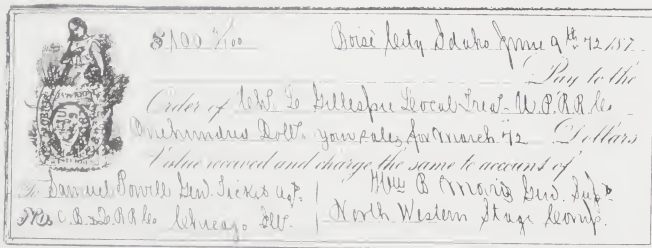 $100 0/100 Boisé City Idaho June 9th 72 187
Pay to the
Order of Chs. L Gillespie Local Trea. U.P.R.R Co.
One hundred Doll. your sales for March 72 Dollars
Value received and charge the same to account of
To Samuel Powell Gen. Ticket Agt. Wm B Morris Gen. Supt
C. B. & Q. R R Co Chicago Ill. North Western Stage Comp.